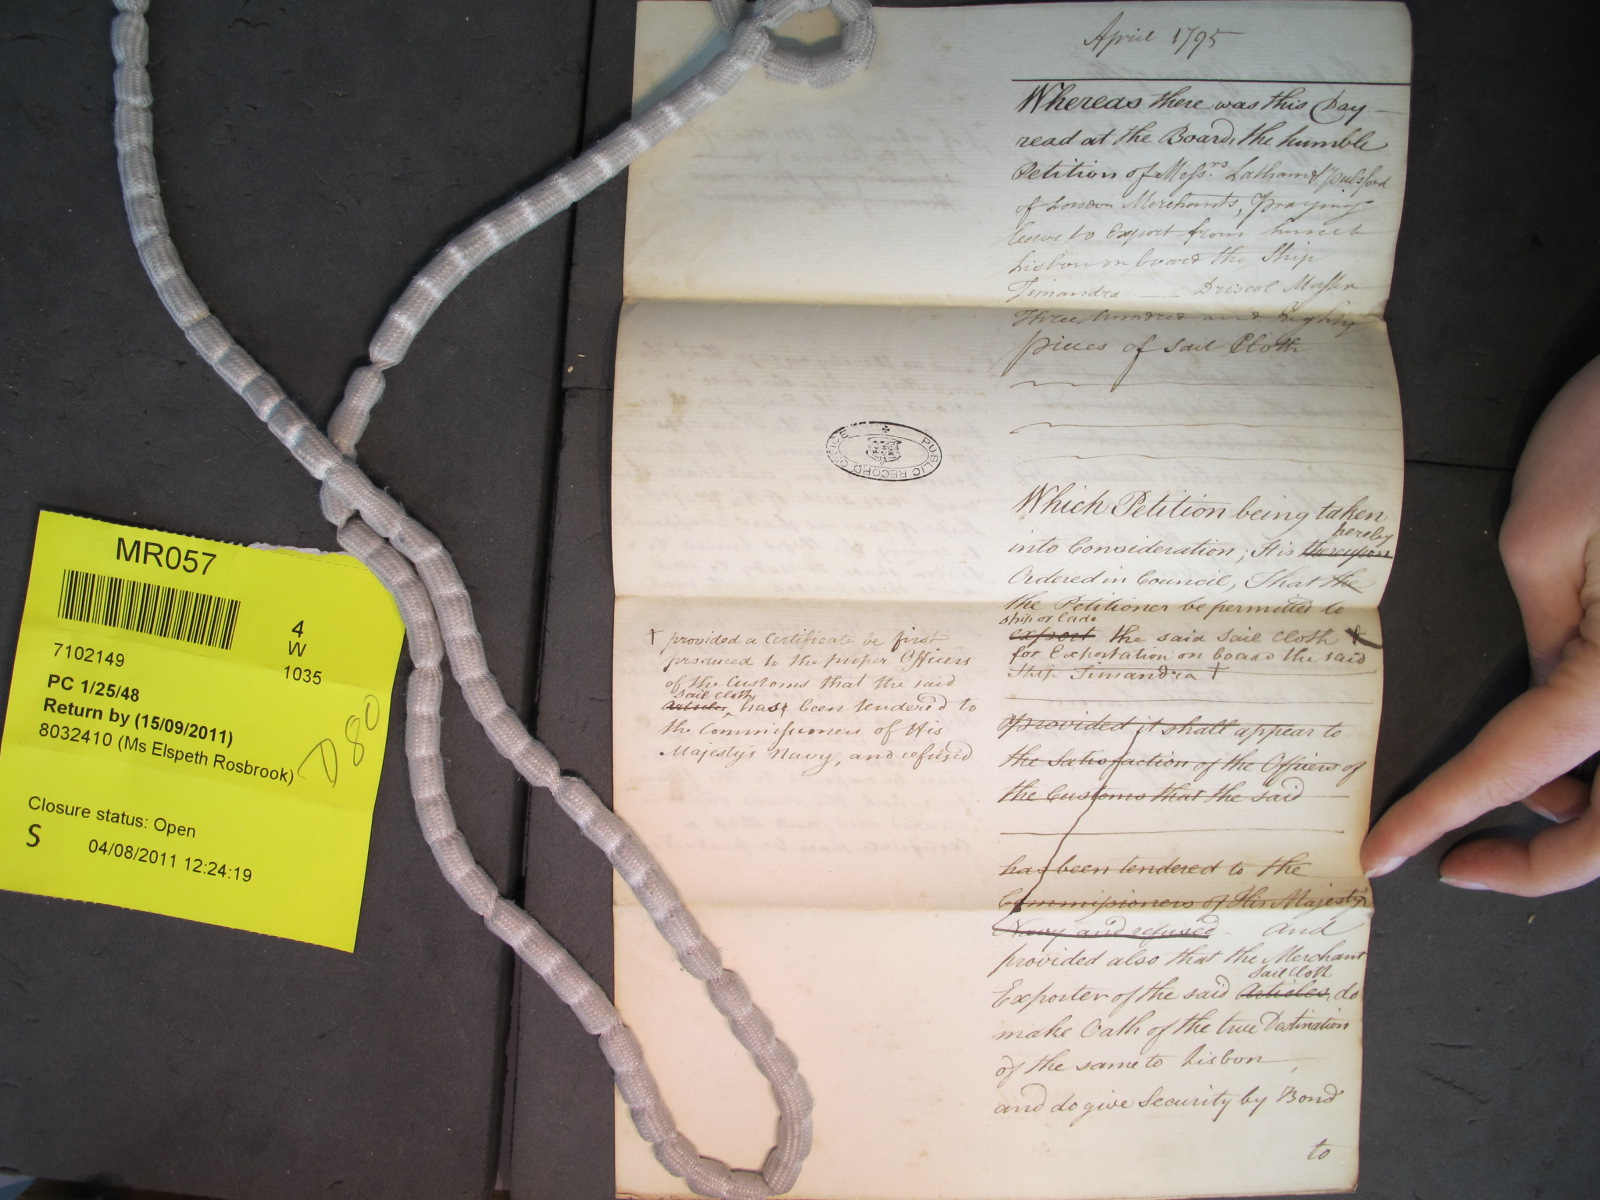 April 1795
Whereas there was this Day
read at the Board, the humble
Petition of Messrs. Latham & Pulsford
of London Merchants, Praying
leave to Export from hence to
Lisbon on board the Ship
Timandra Driscol Master
Three hundred and Eighty
pieces of Sail Cloth
Which Petition being taken
hereby
into Consideration; It is thereupon
Ordered in Council, That the
the Petitioner be permitted to
ship or lade
export the said Sail Cloth
for Exportation on board the said
Ship Timandra †
provided it shall appear to
the satisfaction of the Officers of
the Customs that the said
has been tendered to the
Commissioners of His Majesty's
Navy and refused And
provided also that the Merchant
sail cloth
Exporter of the said Articles, do
make Oath of the true Destination
of the same to Lisbon,
and do give Security by Bond
to
† provided a Certificate be first
produced to the proper Officers
of the Customs that the said
sail cloth
Articles, has been tendered to
the Commissioners of His
Majesty's Navy, and refused
PUBLIC RECORD OFFICE
MR057
4
W
1035
7102149
PC 1/25/48
Return by (15/09/2011)
8032410 (Ms Elspeth Rosbrook)
D80
Closure status: Open
S 04/08/2011 12:24:19